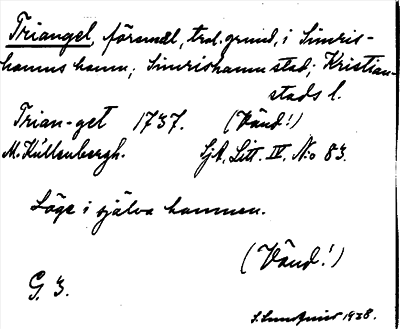 Triangel, föremål, trol. grund, i Simris-
hamns hamn; Simrishamn stad; Kristian-
stads l.
Trian-get 1737. (Vänd!)
M. Kullenbergh. Sjk. Litt. IV. No 83.
Läge i själva hamnen.
(Vänd!)
G. 3.
S. Lundquist 1938.